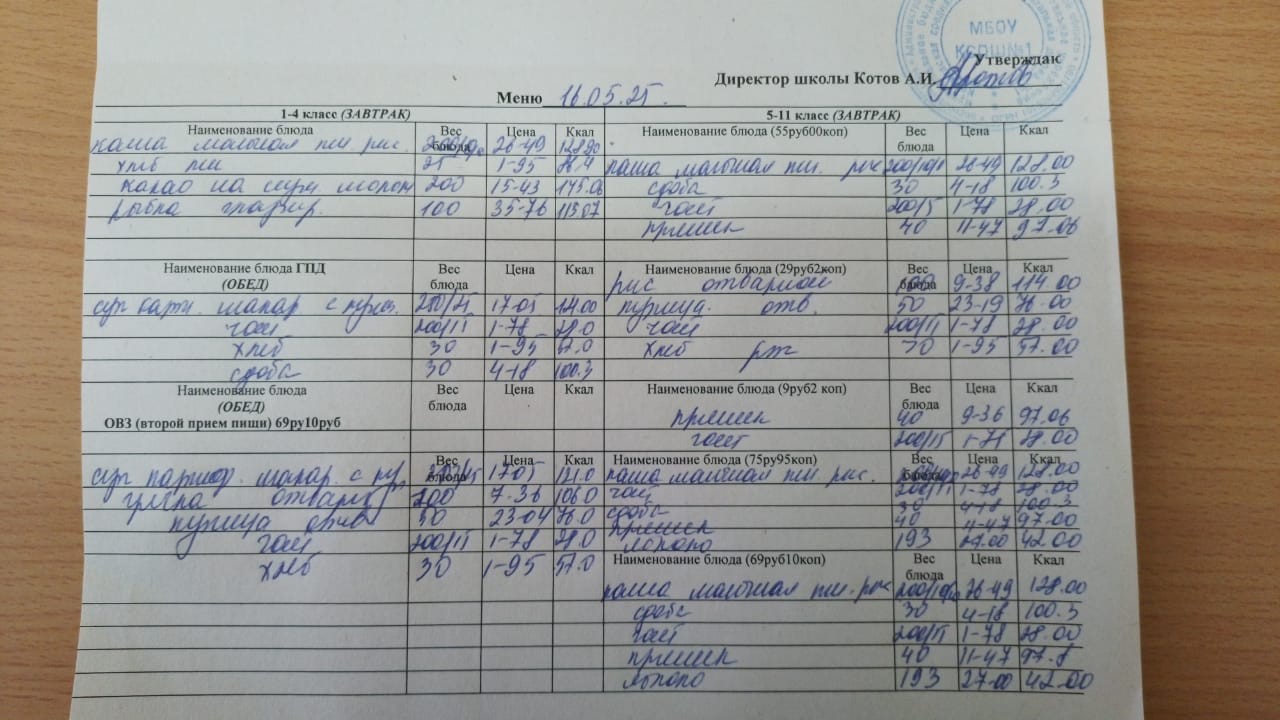 МБОУ
КСОШ№1
Утверждаю
Директор школы Котов А.И.
Меню 16.05.25.
1-4 класс (ЗАВТРАК)
5-11 класс (ЗАВТРАК)
Наименование блюда Вес блюда Цена Ккал
каша молочная пш. рис. 26-49
хлеб пш 25 1-95
какао на сгущ молок 200 15-43
100 35-76 113.07
Наименование блюда (55руб00коп) Вес блюда Цена Ккал
каша молочная пш. рис 26-49 128.00
сдоба 30 4-18 100.3
чай 1-78 28.00
пряник 40 11-47 97.06
Наименование блюда ГПД (ОБЕД) Вес блюда Цена Ккал
суп карт. макар. с куриц. 250/25
чай 200/15 1-78 28.0
хлеб 30 1-95 57.0
сдоба 30 4-18 100.3
Наименование блюда (29руб2коп) Вес блюда Цена Ккал
рис отварной 9-38 114.00
курица отв. 50 23-19 76.00
чай 200/15 1-78 28.00
хлеб рж 30 1-95 57.00
Наименование блюда (ОБЕД) Вес блюда Цена Ккал
ОВЗ (второй прием пищи) 69ру10руб
суп макар. с кур.
гречка отварн 7-36 106.0
курица отв 50 23-04 76.0
чай 200/15 1-78 28.0
хлеб 30 1-95 57.0
Наименование блюда (9руб2 коп) Вес блюда Цена Ккал
пряник 40 9-36 97.06
чай 200/15 1-78 28.00
Наименование блюда (75ру95коп) Вес блюда Цена Ккал
каша молочная пш. рис. 26-49 128.00
чай 1-78 28.00
сдоба 30 4-18 100.3
пряник 40 97.00
молоко 193 42.00
Наименование блюда (69руб10коп) Вес блюда Цена Ккал
каша молочная пш. рис 26-49 128.00
сдоба 30 4-18 100.3
чай 200/15 1-78 28.00
пряник 40 11-47 97.8
молоко 193 27-00 42.00